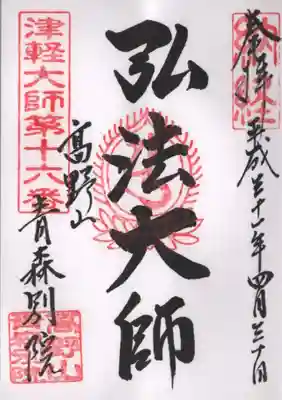 奉拝 平成三十一年四月三十日
弘法大師
高野山
青森別院
津軽大師第十六番